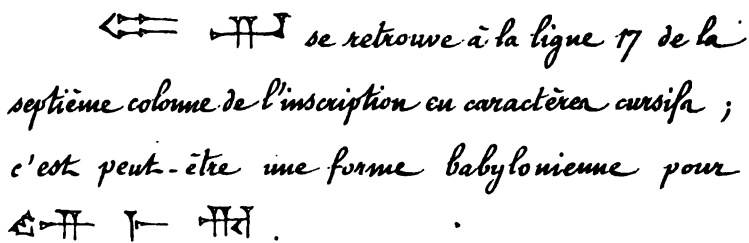 se retrouve à la ligne 17 de la
septième colonne de l'inscription en caractères cursifs ;
c'est peut-être une forme babylonienne pour
.